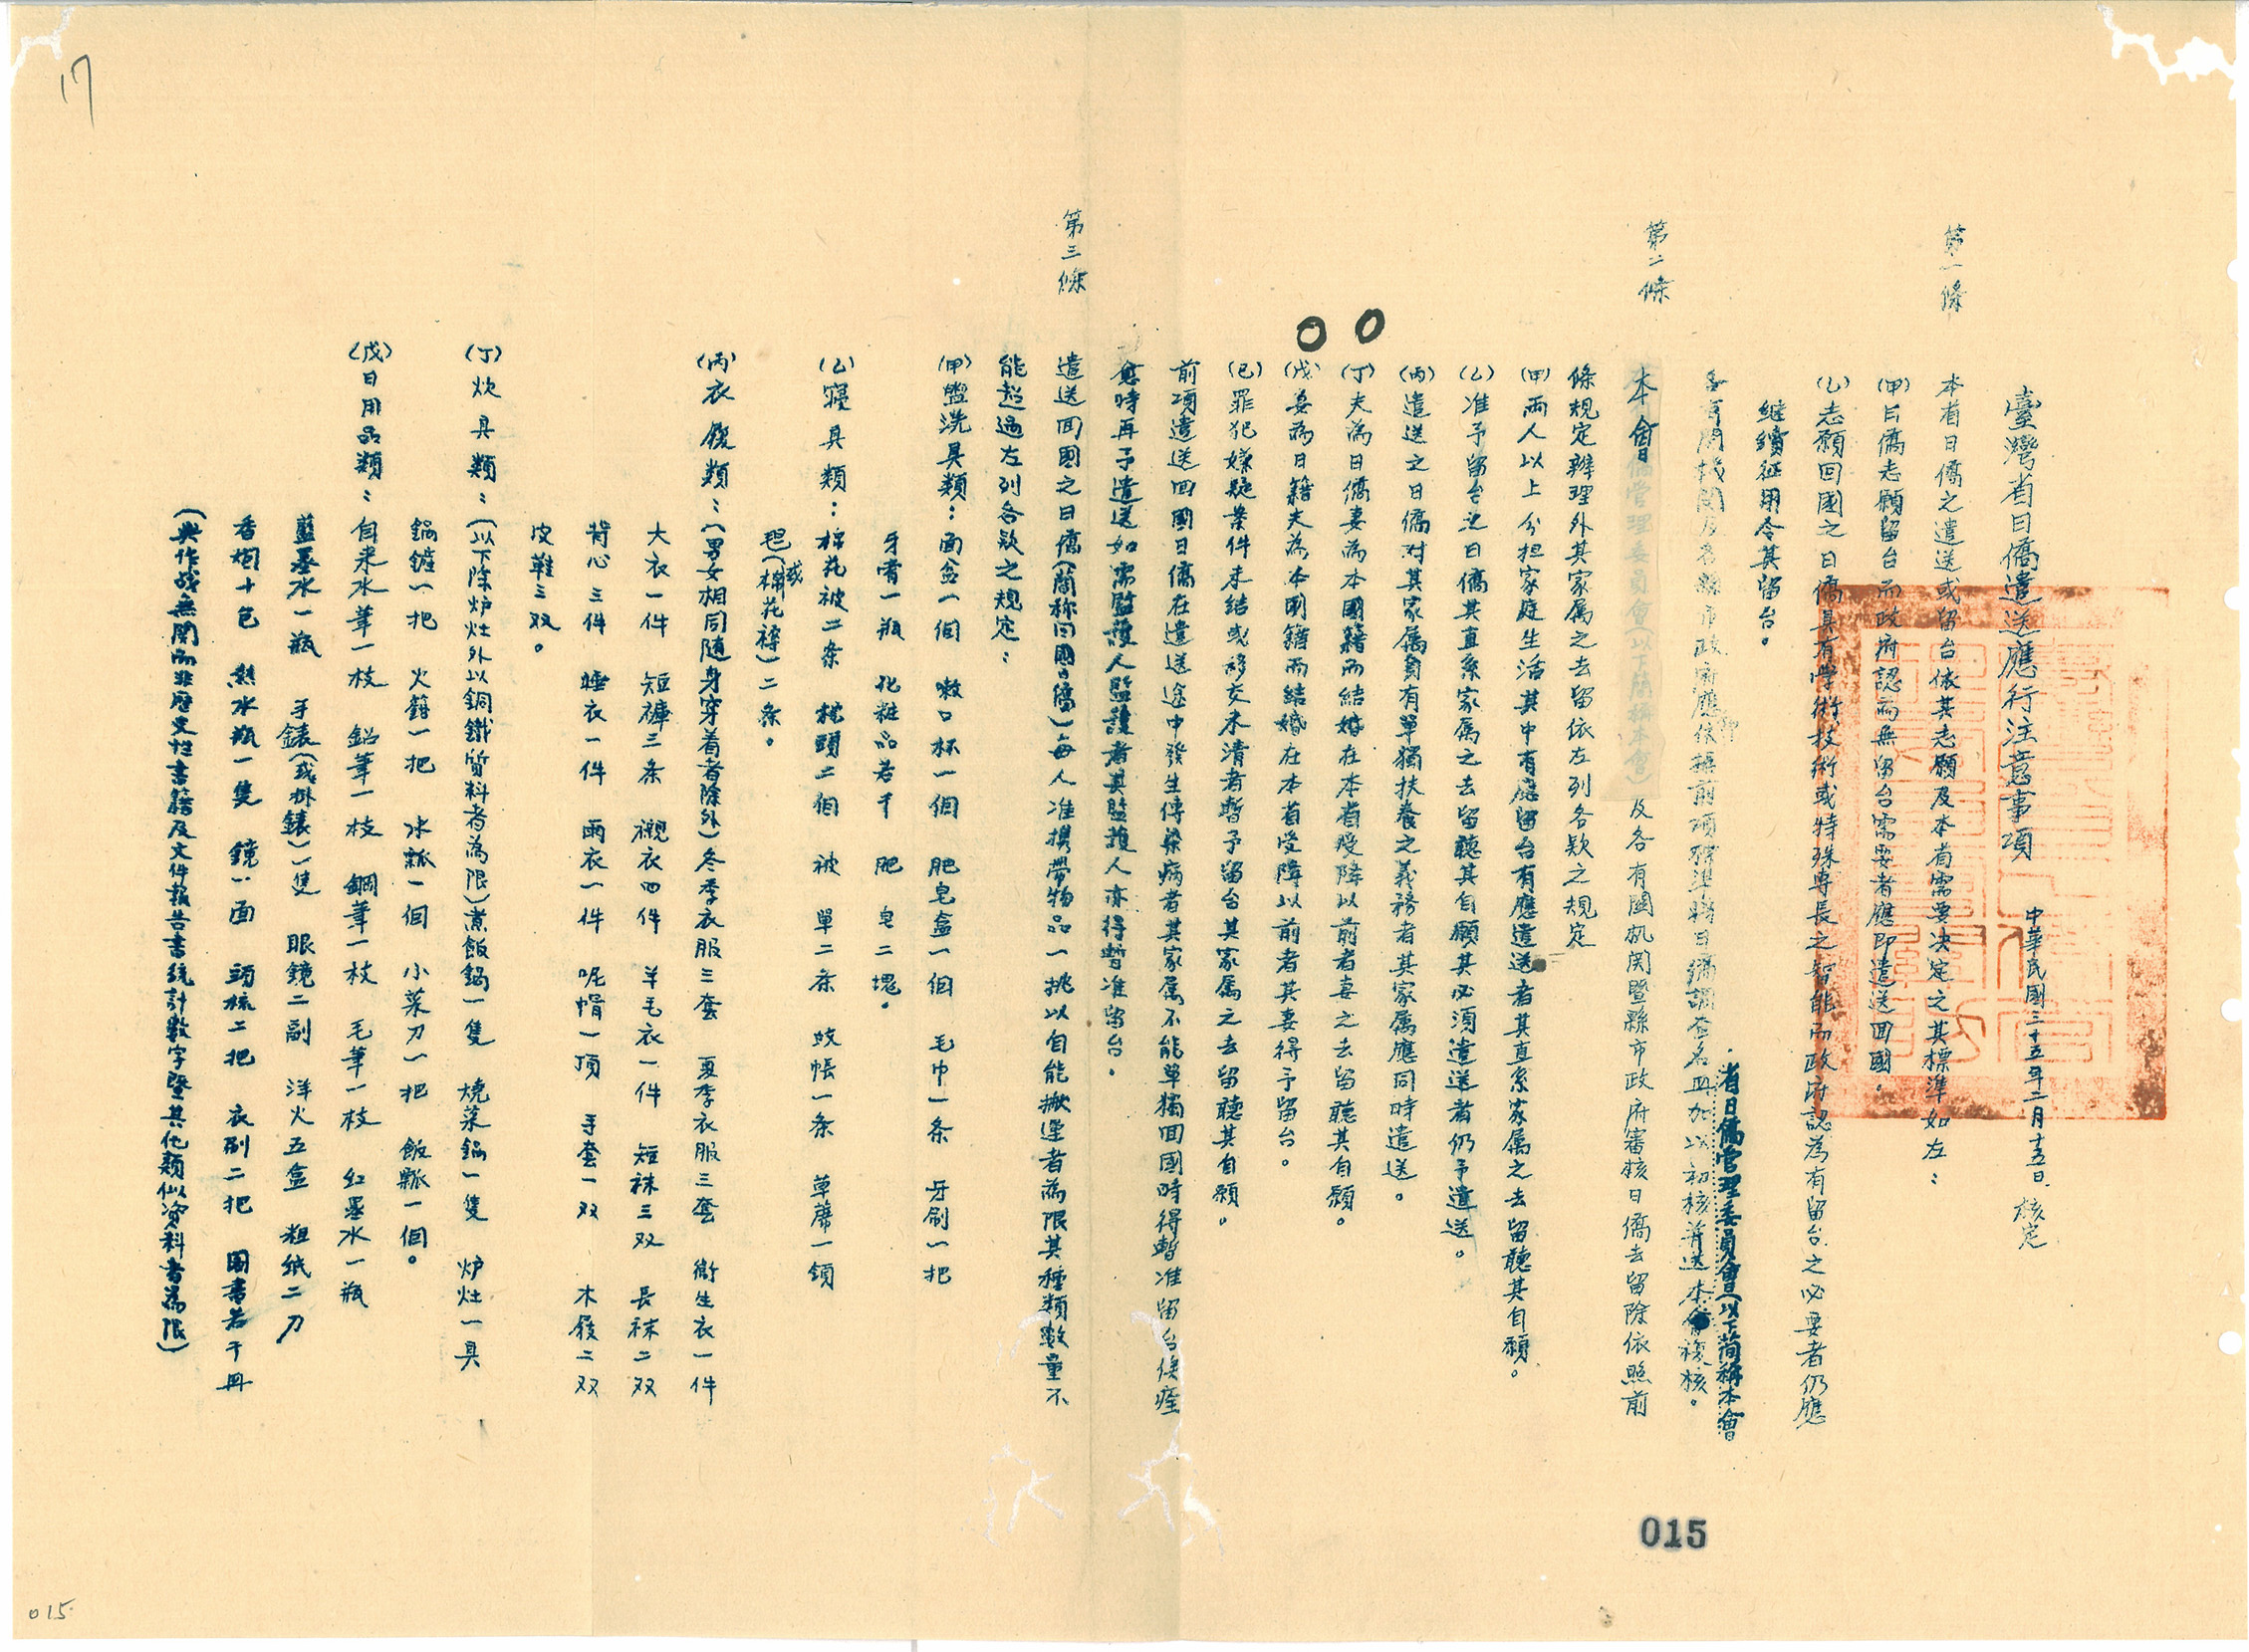 臺灣省日僑遣送應行注意事項
中華民國三十五年二月十五日核定
第一條
本省日僑之遣送或留台依其志願及本省需要决定之其標準如左：
(甲)日僑志願留台而政府認為無留台需要者應即遣送回國。
(乙)志願回國之日僑具有学術技術或特殊專長之智能而政府認為有留台之必要者仍應
継續征用令其留台。
省日僑管理委員會(以下簡稱本會
各有関机関及各縣市政府應依據前項標準將日僑調查名冊加以初核並送本會複核。
第二條
本會及各有関机関暨縣市政府審核日僑去留除依照前
條規定辨理外其家属之去留依左列各款之規定
(甲)兩人以上分担家庭生活其中有應留台有應遣送者其直系家属之去留聽其自願。
(乙)准予留台之日僑其直系家属之去留聽其自願其必須遣送者仍予遣送。
(丙)遣送之日僑对其家属負有單獨扶養之義務者其家属應同時遣送。
(丁)夫為日僑妻為本國籍而結婚在本省受降以前者妻之去留聽其自願。
(戊)妻為日籍夫為本國籍而結婚在本省受降以前者其妻得予留台。
(己)罪犯嫌疑案件未結或移交未清者暫予留台其家属之去留聽其自願。
前項遣送回國日僑在遣送途中發生傳染病者其家属不能單獨回國時得暫准留台俟痊
愈時再予遣送如需監護人監護者其監護人亦得暫准留台。
第三條
遣送回國之日僑(簡称回國日僑)每人准携帶物品一挑以自能搬運者為限其種類數量不
能超過左列各款之規定：
(甲)盥洗具類：面盆一個　嗽口杯一個　肥皂盒一個　毛巾一条　牙刷一把
牙膏一瓶　化粧品若干　肥皂二塊。
(乙)寢具類：棉花被二条　枕頭二個　被單二条　蚊帳一条　草蓆一領
毯(或棉花褥)二条。
(丙)衣履類：(男女相同随身穿着者除外)冬季衣服三套　夏季衣服三套　衛生衣一件
大衣一件　短褲三条　襯衣四件　羊毛衣一件　短袜三双　長袜二双
背心三件　睡衣一件　雨衣一件　呢帽一頂　手套一双　木屐二双
皮鞋三双。
(丁)炊具類：(以下除炉灶外以銅鐵質料者為限)煮飯鍋一隻　燒菜鍋一隻　炉灶一具
鍋鏟一把　火鉗一把　水瓢一個　小菜刀一把　飯瓢一個。
(戊)日用品類：自来水筆一枝　鉛筆一枝　鋼筆一枝　毛筆一枝　红墨水一瓶
藍墨水一瓶　手錶(或掛錶)一隻　眼鏡二副　洋火五盒　粗紙二刀
香烟十包　熱水瓶一隻　鏡一面　頭梳二把　衣刷二把　圖書若干冊
(與作战無関而非歷史性書籍及文件報告書統計數字暨其他類似资料者為限)
17
015
015